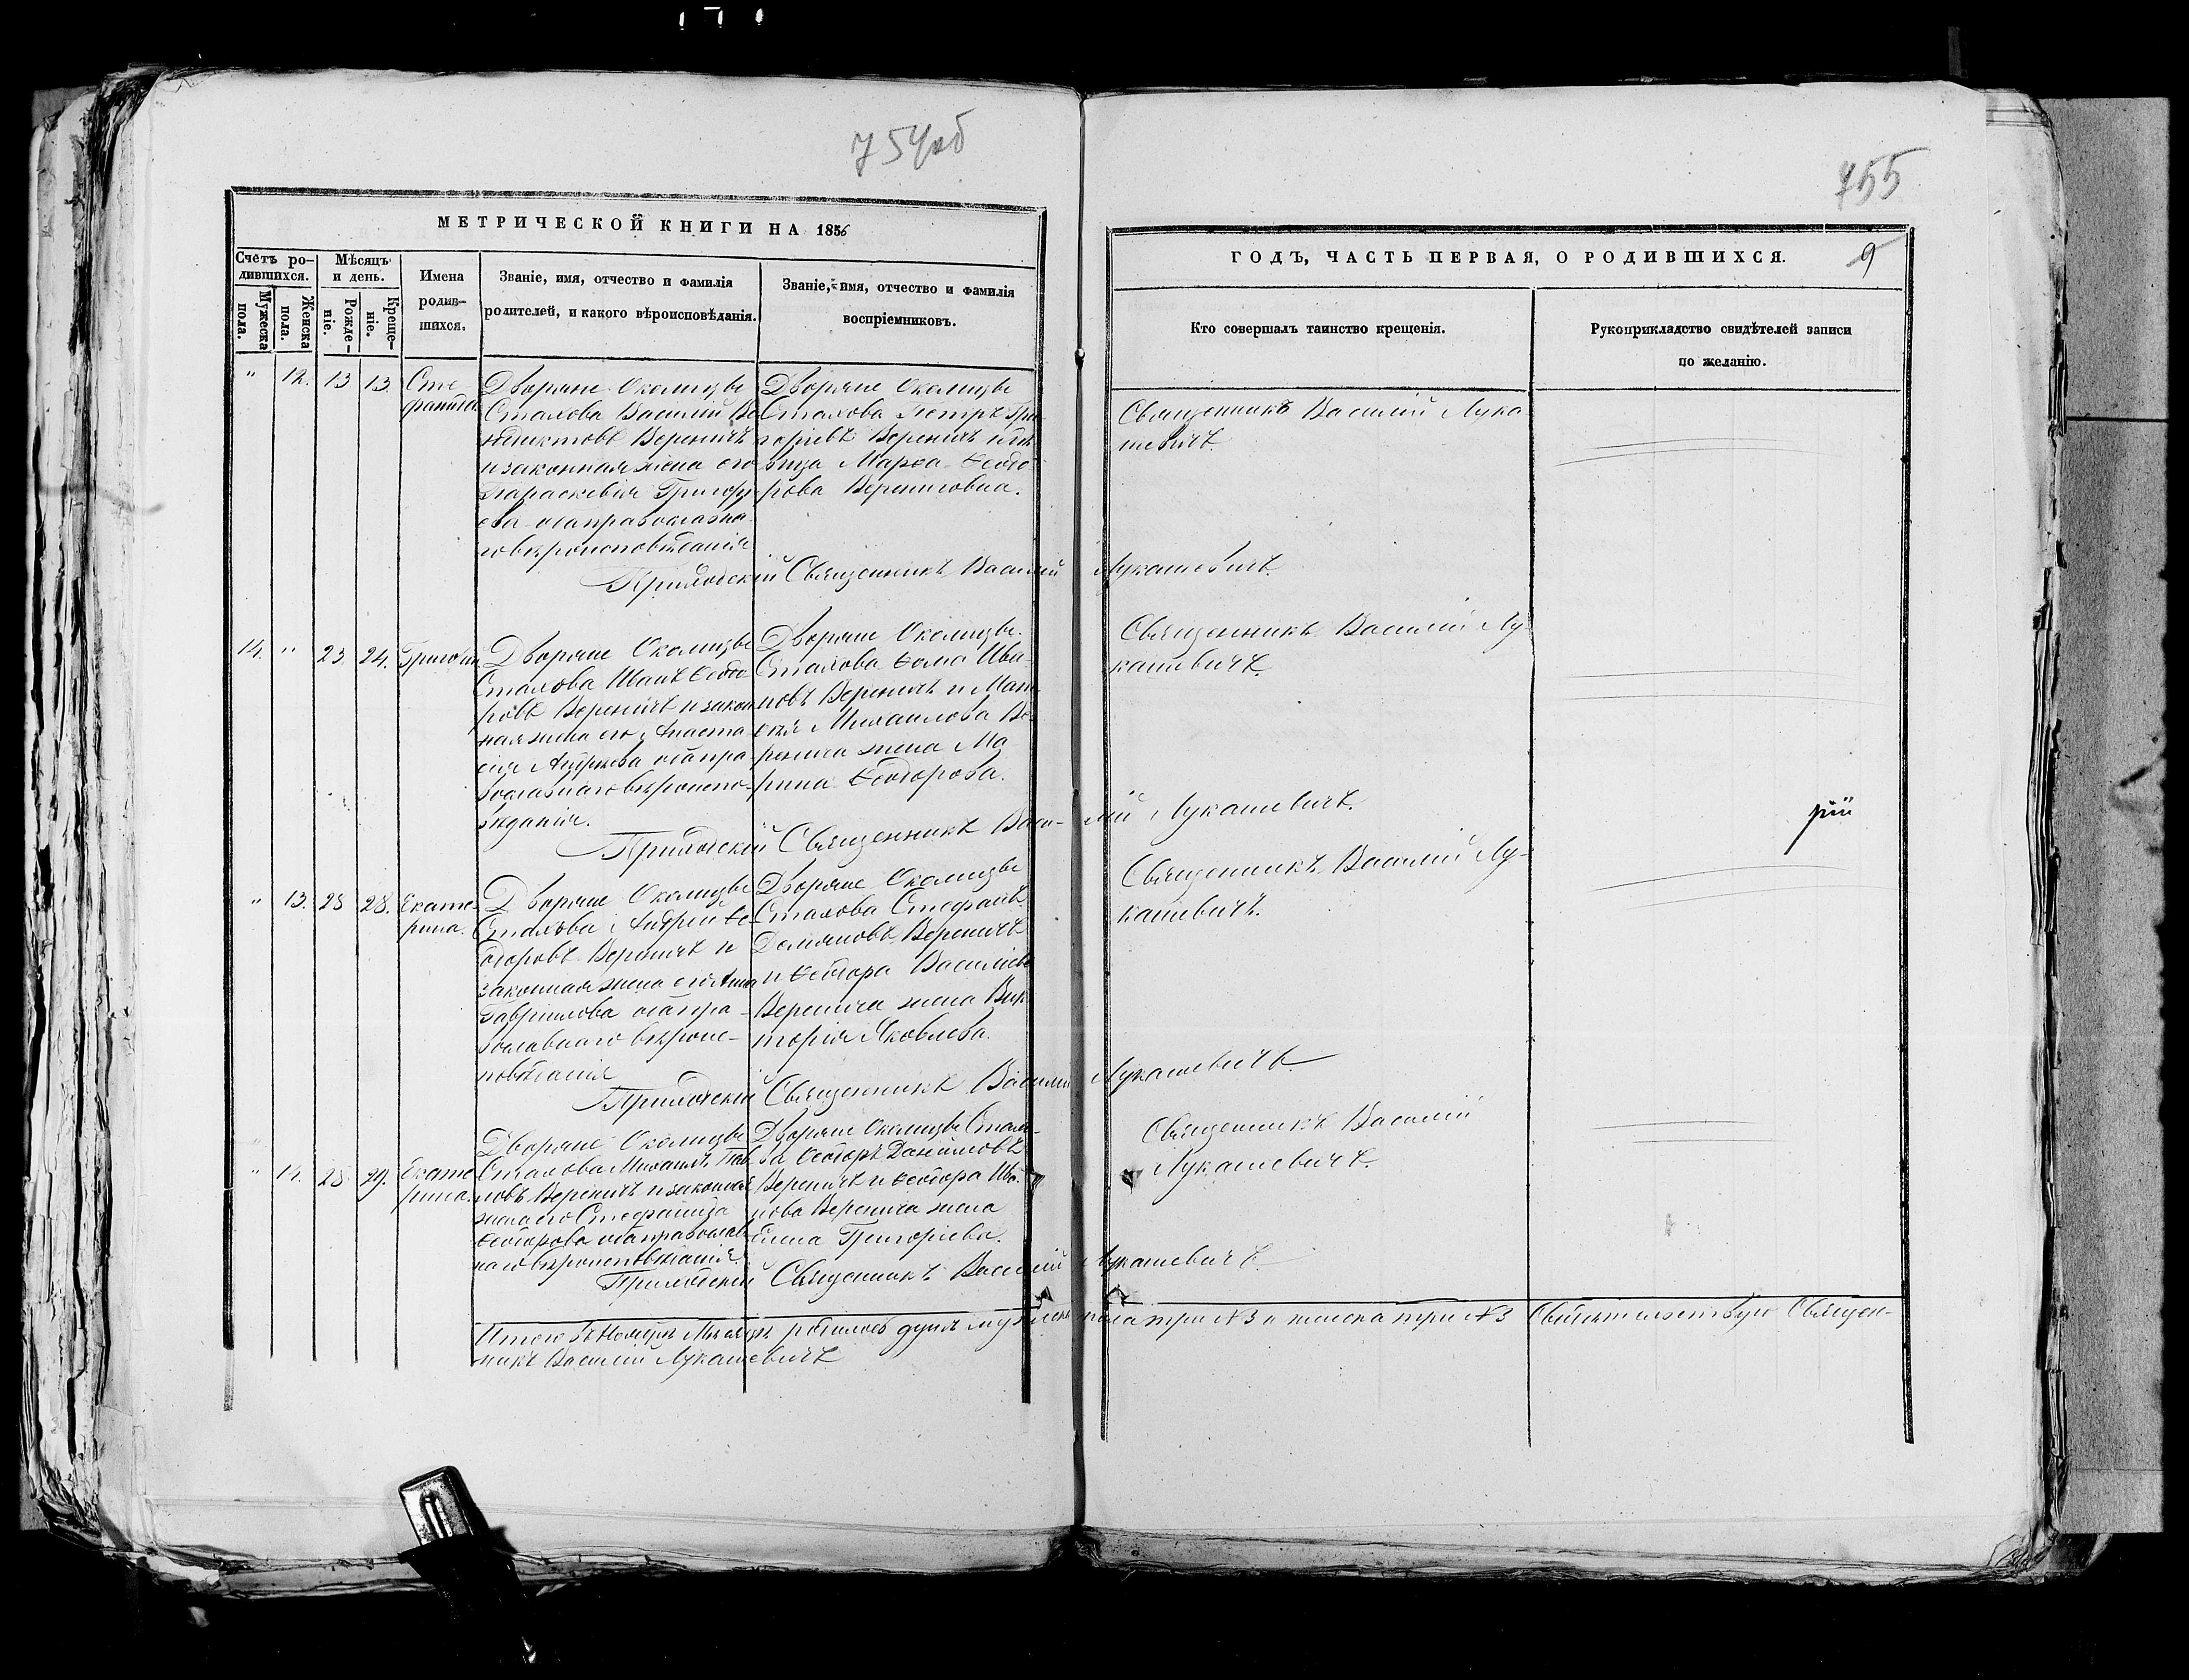 754об
755
МЕТРИЧЕСКОЙ КНИГИ НА 1856
ГОДЪ, ЧАСТЬ ПЕРВАЯ, О РОДИВШИХСЯ.
9
Счетъ ро-
дившихся.
Мужеска
пола.
Женска
пола.
Мѣсяцъ
и день.
Рожде-
ніе.
Креще-
ніе.
Имена
родив-
шихся.
Званіе, имя, отчество и фамилія
родителей, и какого вѣроисповѣданія.
Званіе, имя, отчество и фамилія
воспріемниковъ.
Кто совершалъ таинство крещенія.
Рукоприкладство свидѣтелей записи
по желанію.
" 12. 13. 13.
Сте
фанида
Дворяне Околицы
Стахова Василій Ве
недиктовъ Вереничъ
и законная жена его
Параскевія Григорі
ева оба православна
го вѣроисповѣданія
Дворяне Околицы
Стахова Петръ Гри
горіевъ Вереничъ и дѣ
вица Марѳа Ѳеодо
рова Вереничовна.
Священникъ Василій Лука
шевичъ.
Приходскій Священникъ Василій Лукашевичъ.
14. " 23. 24. Григорій
Дворяне Околицы
Стахова Иванъ Ѳеодо
ровъ Вереничъ и закон
ная жена его Анаста
сія Андреева оба пра
вославнаго вѣроиспо-
вѣданія.
Дворяне Околицы
Стахова Ѳома Ива-
новъ Вереничъ и
Михаилова Ве
ренича жена Ма
рина Ѳеодорова.
Священникъ Василій Лу
кашевичъ.
Приходскій Священникъ Васи- лій Лукашевичъ.
рій
" 13. 28 28. Екате-
рина.
Дворяне Околицы
Стахова Андрей Ѳе-
одоровъ Вереничъ и
законная жена его Анна
Гавріилова оба пра-
вославнаго вѣроис-
повѣданія
Дворяне Околицы
Стахова Стефанъ
Демяновъ Вереничъ
и Ѳеодора Василіева
Веренича жена Вик
торія Яковлева.
Священникъ Василій Лу-
кашевичъ.
Приходскій Священникъ Василій Лукашевичъ.
" 14. 28 29. Екате
рина.
Дворяне Околицы
Стахова Михаилъ Пав
ловъ Вереничъ и законная
жена его Стефанида
Ѳеодорова оба православ
наго вѣроисповѣданія.
Дворяне Околицы Стахо-
ва Ѳеодоръ Даніиловъ
Вереничъ и Ѳеодора Ива-
нова Веренича жена
Елена Григоріева.
Священникъ Василій
Лукашевичъ.
Приходскій Священникъ Василій Лукашевичъ.
Итого въ Ноябрѣ Мѣсяцѣ родилось душъ мужеска пола три №3 и женска три №3 Свидѣтельствую Священ-
никъ Василій Лукашевичъ